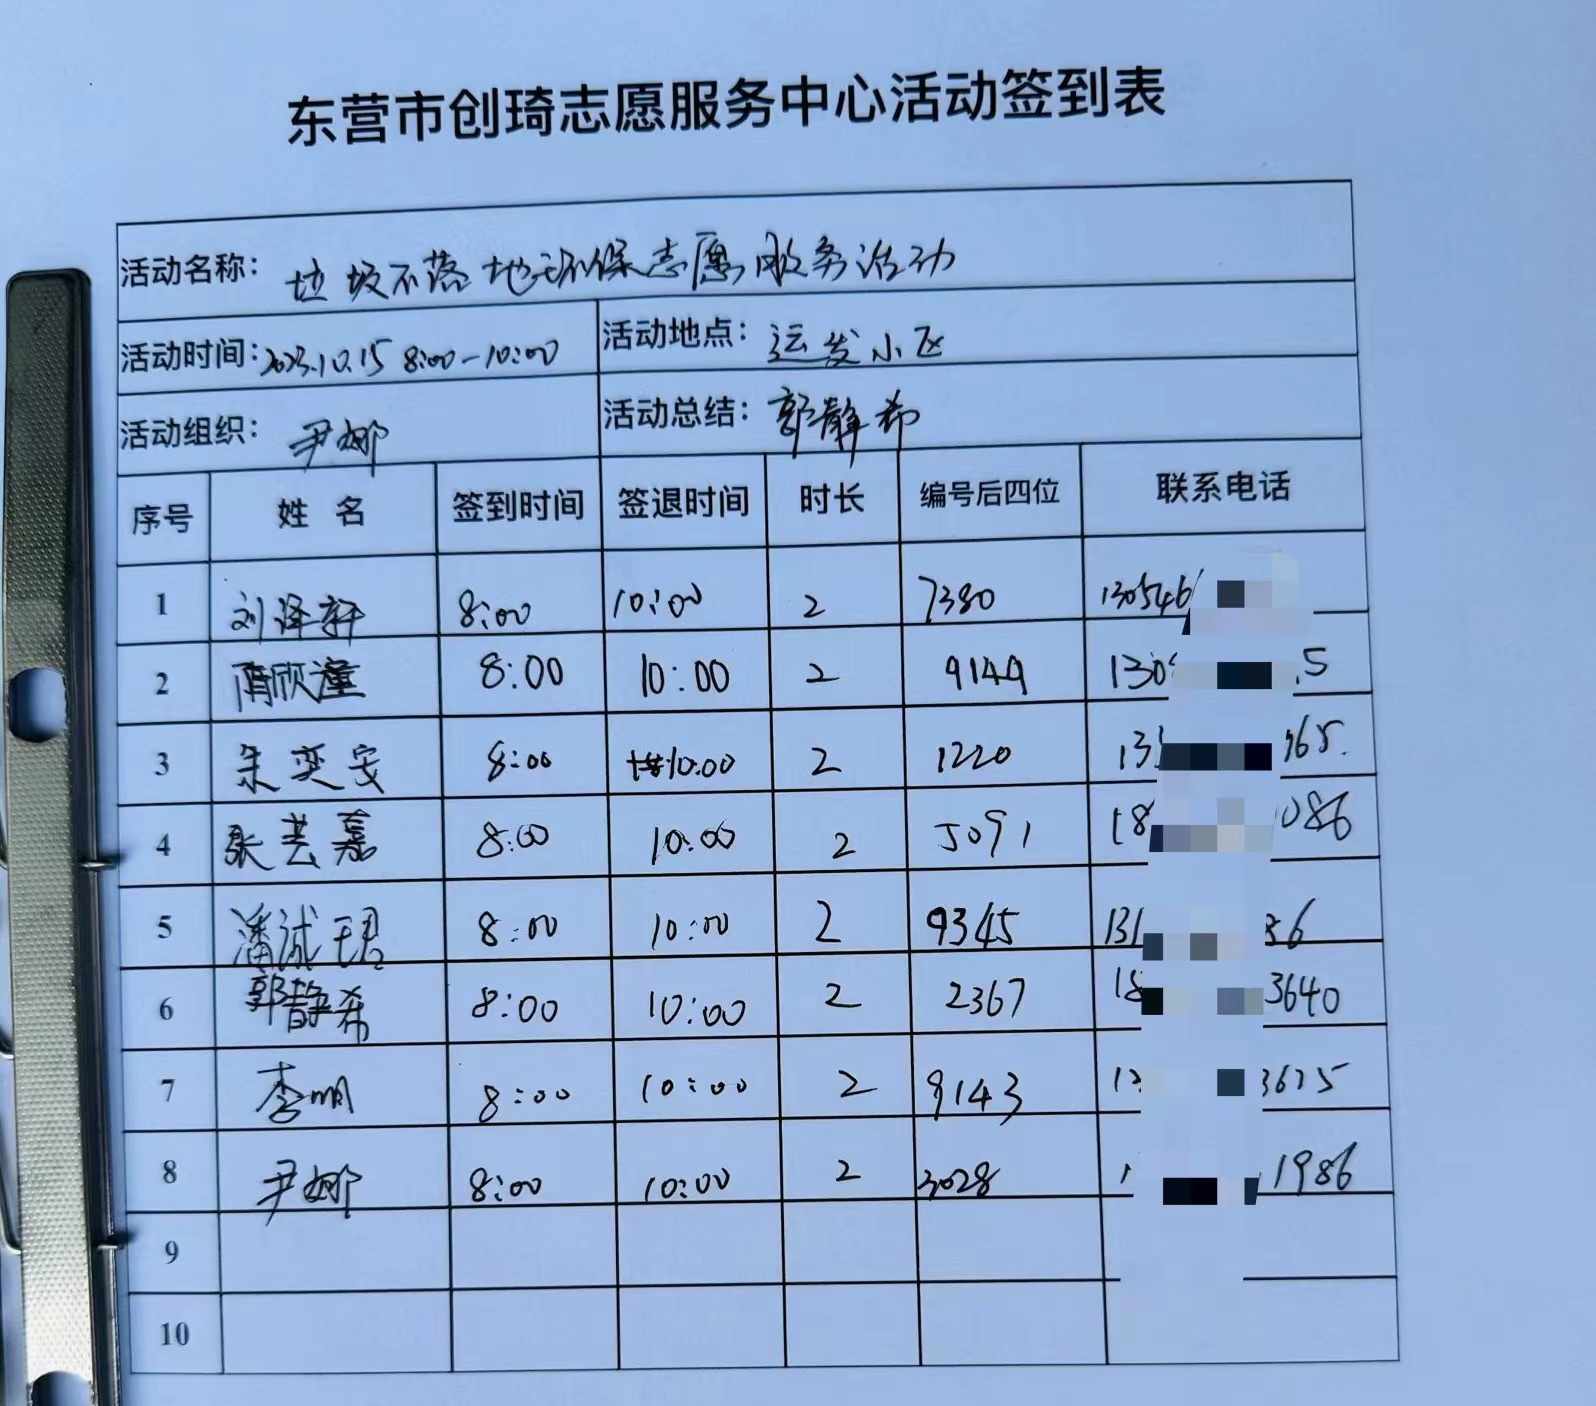 东营市创琦志愿服务中心活动签到表
活动名称： 垃圾不落地环保志愿服务活动
活动时间：2023.10.15 8:00-10:00 活动地点： 运发小区
活动组织： 尹娜 活动总结： 郭静希
序号 姓 名 签到时间 签退时间 时长 编号后四位 联系电话
1 刘泽轩 8:00 10:00 2 7380 130546
2 隋欣潼 8:00 10:00 2 9149 130 5
3 朱奕安 8:00 10:00 2 1220 13 765.
4 张芸嘉 8:00 10:00 2 5091 18 086
5 潘诚珺 8:00 10:00 2 9345 131 6
6 郭静希 8:00 10:00 2 2367 18 3640
7 李明 8:00 10:00 2 9143 1 3675
8 尹娜 8:00 10:00 2 3028 1 1986
9
10